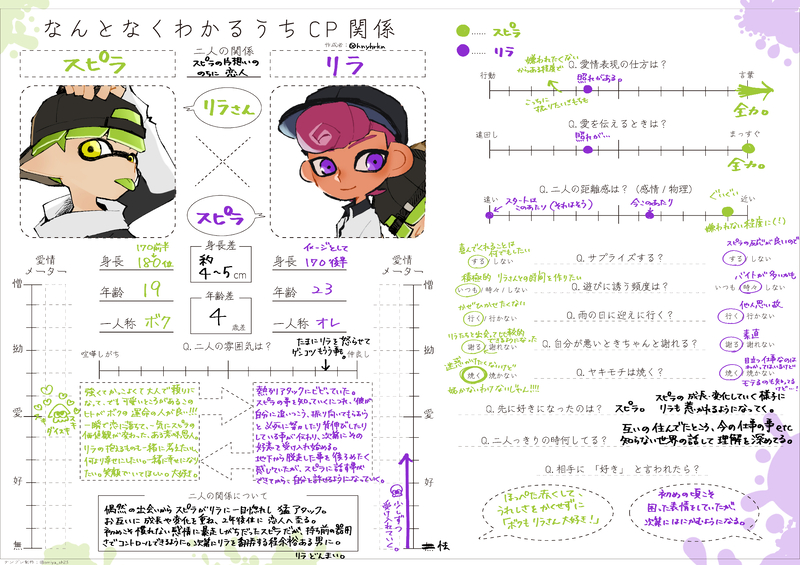 なんとなくわかるうちCP関係
作成者：@hnyhrkn
スピラ
二人の関係
スピラの片想いの
のちに 恋人
リラ
リラさん
スピラ
170前半
↓
身長 180位
年齢 19
一人称 ボク
身長差
約
4〜5cm
年齢差
4歳差
イメージとして
身長 170後半
年齢 23
一人称 オレ
愛情
メーター
憎
拗
愛
好
無
ダイスキ
愛情
メーター
憎
拗
愛
好
無
少しずつ
受け入れていく。
Q.二人の雰囲気は？
たまにリラを怒らせて
ゲンコツもらう事も。
喧嘩しがち
仲良し
強くてかっこよくて大人で頼りに
なって、でも可愛いところがあるこの
ヒトが ボクの 運命の人が良い!!!
一瞬で恋に落ちて、一気にスピラの
価値観が変わった、ある意味恩人。
リラの抱えるものも一緒に考えたい。
何より幸せにしたい。一緒に幸せになり
たい。笑顔でいてほしい。大好き。
熱烈アタックにビビっていた。
スピラの事を知っていくにつれ、彼が
自分に追いつこう、振り向いてもらおう
と必死に悩んだり背伸びしたり
している事が伝わり、次第にその
好意を受け入れ始める。
地下から脱走した事を後ろめたく
感じていたが、スピラに話す事が
できてから、自分を許せるようになっていく。
二人の関係について
偶然の出会いからスピラがリラに一目惚れし 猛アタック。
お互いに 成長や変化を重ね、2年後位に 恋人へ至る。
初めこそ慣れない感情に暴走しがちだったスピラだが、持ち前の器用
さでコントロールできるように。次第にリラを翻弄する程余裕ある男に。
リラ どんまい。
スピラ
リラ
Q.愛情表現の仕方は？
嫌われたくない
からある程度で
照れがある。
行動
言葉
こっちに
振りたいきもち
全力。
Q.愛を伝えるときは？
照れが…
遠回し
まっすぐ
全力。
Q.二人の距離感は？（感情 / 物理）
ぐいぐい
遠い
スタートは
このあたり（それはそう）
今このあたり
近い
嫌われない程度に(！)
喜んでくれることは
何でもしたい
する / しない
Q.サプライズする？
スピラの反応が良いので
する / しない
積極的 リラさんとの時間を作りたい
いつも / 時々 / しない
Q.遊びに誘う頻度は？
バイトが多いから
いつも 時々 / しない
かぜひかせたくない
行く / 行かない
Q.雨の日に迎えに行く？
他人思い故
行く / 行かない
謝る / 謝れない
Q.自分が悪いときちゃんと謝れる？
素直
謝る / 謝れない
焼く / 焼かない
Q.ヤキモチは焼く？
焼く / 焼かない
妬かないわけないじゃん!!!!
Q.先に好きになったのは？ スピラ。
スピラの 成長・変化していく様子に
リラも 惹かれるようになってく。
Q.二人っきりの時何してる？
互いの住んでたところ、今の仕事の事etc
知らない世界の話して 理解を深めてる。
Q.相手に 「好き」 と言われたら？
ほっぺた赤くして、
うれしさをかくせずに
「ボクもリラさん大好き！」
初めの頃こそ
困った表情をしていたが、
次第にはにかむようになる。